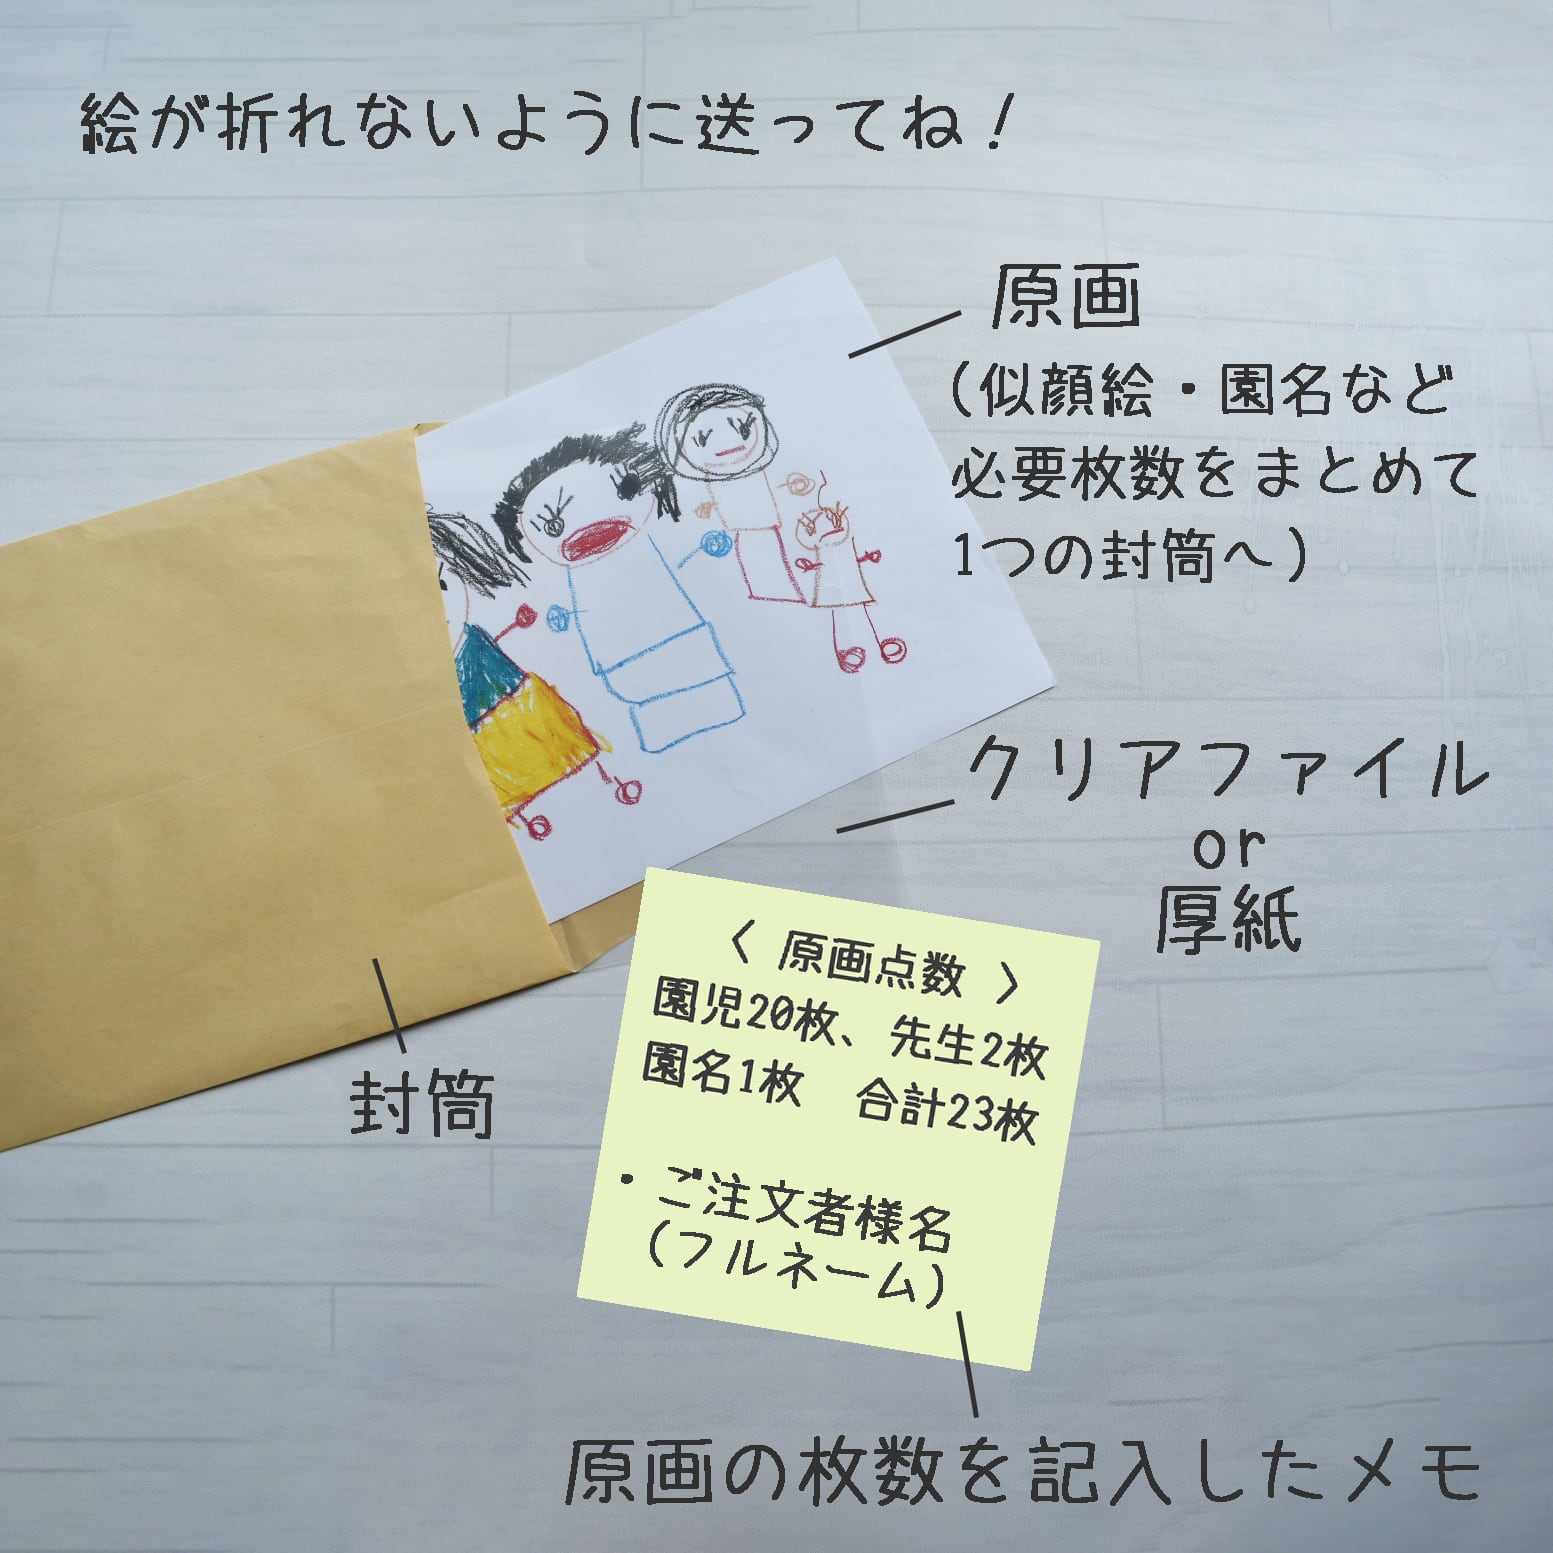 絵が折れないように送ってね！
原画
（似顔絵・園名など
必要枚数をまとめて
1つの封筒へ）
クリアファイル
or
厚紙
封筒
〈 原画点数 〉
園児20枚、先生2枚
園名1枚　合計23枚
・ご注文者様名
（フルネーム）
原画の枚数を記入したメモ